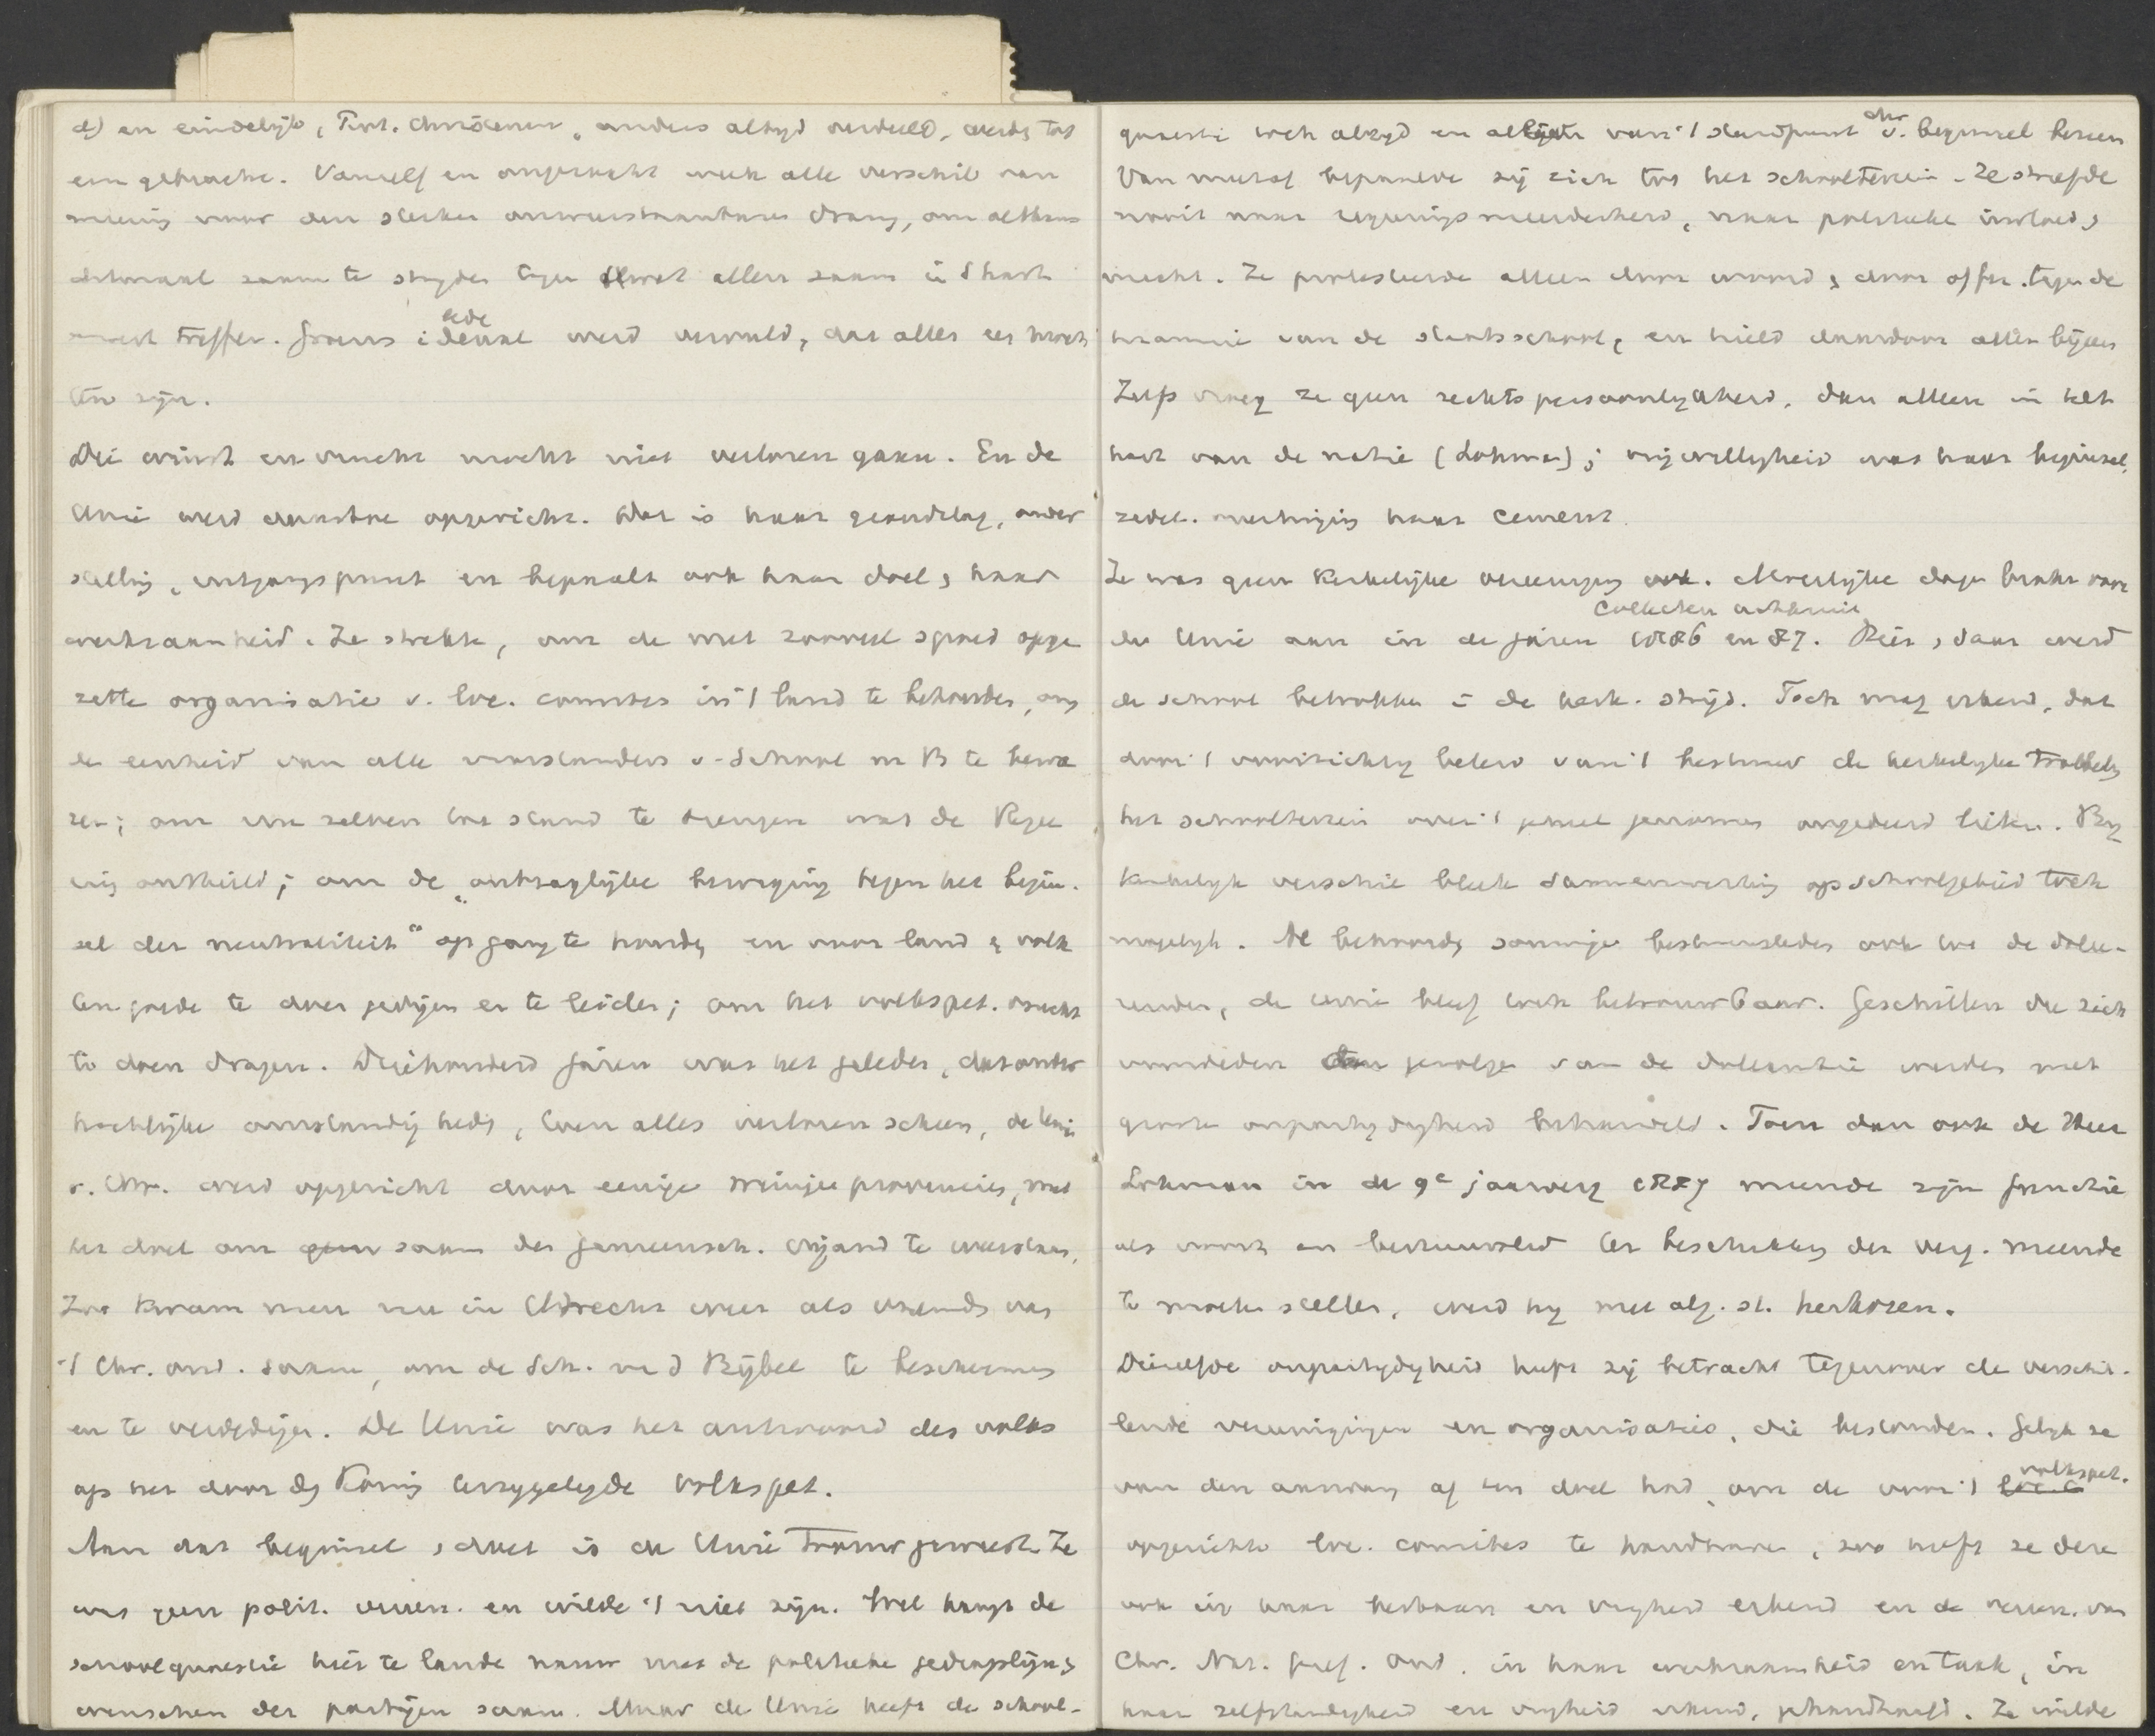 en eindelijk, Prot. Christenen, anders altijd verdeeld, werden tot
een gebracht. Vanzelf en ongezocht week alle verschil van
mening voor den sterken onweerstaanbaren drang, om althans
éénmaal saam te strijden tegen wat allen saam in 't hart
moest treffen. Groens ideaal werd vervuld, dat alles eer moest
één zijn.
Die winst en vrucht mocht niet verloren gaan. En de
Unie werd opgericht. Dat is haar grondslag, onder
stelling, uitgangspunt en bepaalt ook haar doel & haar
werkzaamheid. Ze strekte, om de met zooveel spoed opge
zette organisatie v. loc. comités in 't land te behouden, om
de eenheid van alle voorstanders v. School m B te bewa
ren; om een zelfden toestand te brengen wat de Regee
ring onthield; om de "onhoudbare beweging tegen het begin-
sel der neutraliteit" op gang te houden en voor land & volk
ten goede te doen gedijen en te leiden; om het volkspet. vrucht
te doen dragen. Driehonderd jaren was het geleden, dat onder
hachlijke omstandigheden, toen alles verloren scheen, de Unie
v. Utr. werd opgericht door eenige weinige provincies, met
het doel om saam den gemeensch. vijand te weerstaan.
Zoo kwam men nu in Utrecht weer als vrienden van
't Chr. ond. saam, om de Sch. m d Bijbel te beschermen
en te verdedigen. De Unie was het antwoord des volks
op het door den Koning terzijgelegde volkspet.
Aan dat beginsel & doel is de Unie trouw geweest. Ze
was geen polit. vereen. en wilde 't niet zijn. Wel hangt de
schoolquaestie hier te lande nauw met de politieke gedragslijn &
wenschen der partijen saam. Maar de Unie heeft de school-
quaestie toch altijd en van 't standpunt v. chr. beginsel bezien
Van meetaf bepaalde zij zich tot het schoolterrein. Ze streefde
nooit naar regeeringsmeerderheid, naar politieke invloed &
macht. Ze protesteerde alleen door woord & door offer tegen de
tirannie van de staatsschool, en hield daardoor allen bijeen
Zelfs vroeg ze geen rechtspersoonlijkheid, dan alleen in het
hart van de natie (Lohman); vrijwilligheid was haar beginsel,
zedel. overtuiging haar cement.
Ze was geen Kerkelijke vereeniging ook. Moeilijke dagen braken voor
de Unie aan in de jaren 1886 en 87. Hier & daar werd
Collecten
de school betrokken in de kerk. strijd. Toch mag erkend, dat
door 't voorzichtig beleid van 't bestuur de kerkelijke troebelen
het schoolterrein over 't geheel genomen ongedeerd lieten. Bij
kerkelijk verschil bleek samenwerking op schoolgebied toch
mogelijk. Al behoorden sommige bestuursleden ook tot de dolee-
renden, de Unie bleef toch betrouwbaar. Geschillen die zich
voordeden ten gevolge van de doleantie werden met
groote onpartijdigheid behandeld. Toen dan ook de Heer
Lohman in de 9e jaarverg 1887 meende zijn functie
als voorz en bestuurslid ter beschikking der verg. meende
te moeten stellen, werd hij met alg. st. herkozen.
Diezelfde onpartijdigheid heeft zij betracht tegenover de verschil-
lende vereenigingen en organisaties, die bestonden. Gelijk ze
van den aanvang af ten doel had, om de voor 't volkspet.
opgerichte loc. comités te handhaven, zoo heeft ze deze
ook in haar bestaan en vrijheid erkend en de vereen. van
Chr. Nat. Gref. Ond. in haar werkzaamheid en taak, in
haar zelfstandigheid en vrijheid erkend, gehandhaafd. Ze wilde